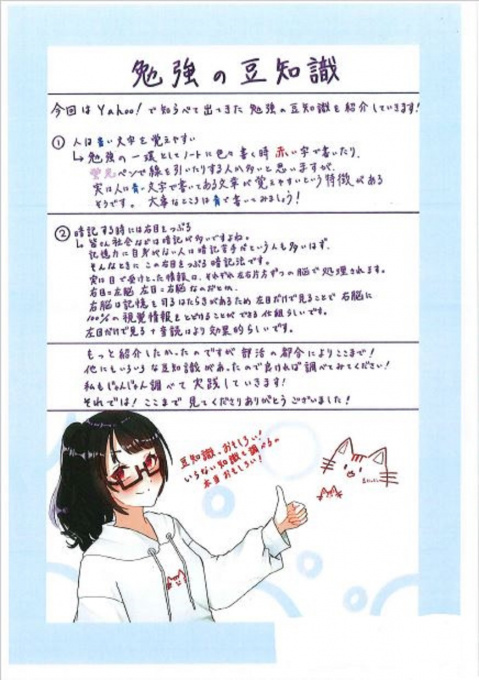 勉強の豆知識
今回はYahoo!で知らべて出てきた勉強の豆知識を紹介していきます!
① 人は青い文字を覚えやすい
↳ 勉強の一環としてノートに色々書く時 赤い字で書いたり、
蛍光ペンで線を引いたりする人が多いと思いますが、
実は人は青い文字で書いてある文章が覚えやすいという特徴がある
そうです。大事なところは青で書いてみましょう!
② 暗記する時には右目をつぶる
↳ 皆さん社会などは暗記が多いですよね。
記憶力に自身がない人は暗記苦手だという人も多いはず、
そんなときにこの右目をつぶる暗記法です。
実は目で受けとった情報は、それぞれ左右片方ずつの脳で処理されます。
右目=左脳 左目=右脳なのだとか。
右脳は記憶を司るはたらきがあるため左目だけで見ることで右脳に
100%の視覚情報をとどけることができる仕組らしいです。
左目だけで見る+音読はより効果的らしいです。
もっと紹介したかったのですが部活の都合によりここまで!
他にもいろいろな豆知識があったので良ければ調べてみてください!
私もじゃんじゃん調べて実践していきます!
それでは!ここまで見てくださりありがとうございました!
豆知識、おもしろい!
いらない知識を調べるの
本当おもしろい!